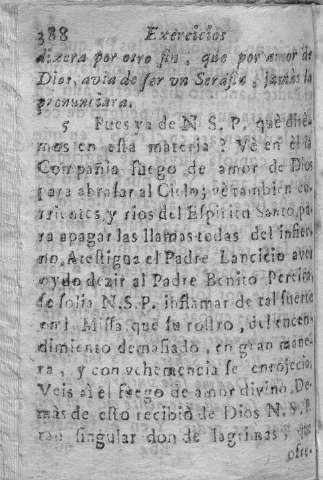 388 Exercicios
dixera por otro fin, que por amor de
Dios, avia de ser un Serafin, jamàs la
pronunciara.
5 Pues ya de N. S. P. què dirè-
mos en esta materia? Ve en èl la
Compañia fuego de amor de Dios
para abrasar al Cielo; vè tambien co-
rrientes, y rios del Espiritu Santo, pa-
ra apagar las llamas todas del infier-
no. Atestigua el Padre Lancicio aver
oydo dezir al Padre Benito Pereira,
se solia N.S.P. inflamar de tal suerte
en la Missa, que su rostro, del encen-
dimiento demasiado, en gran mane-
ra, y con vehemencia se enrojecia.
Veis aì el fuego de amor divino. De-
màs de esto recibiò de Dios N. S. P.
tan singular don de lagrimas, que
ofre-